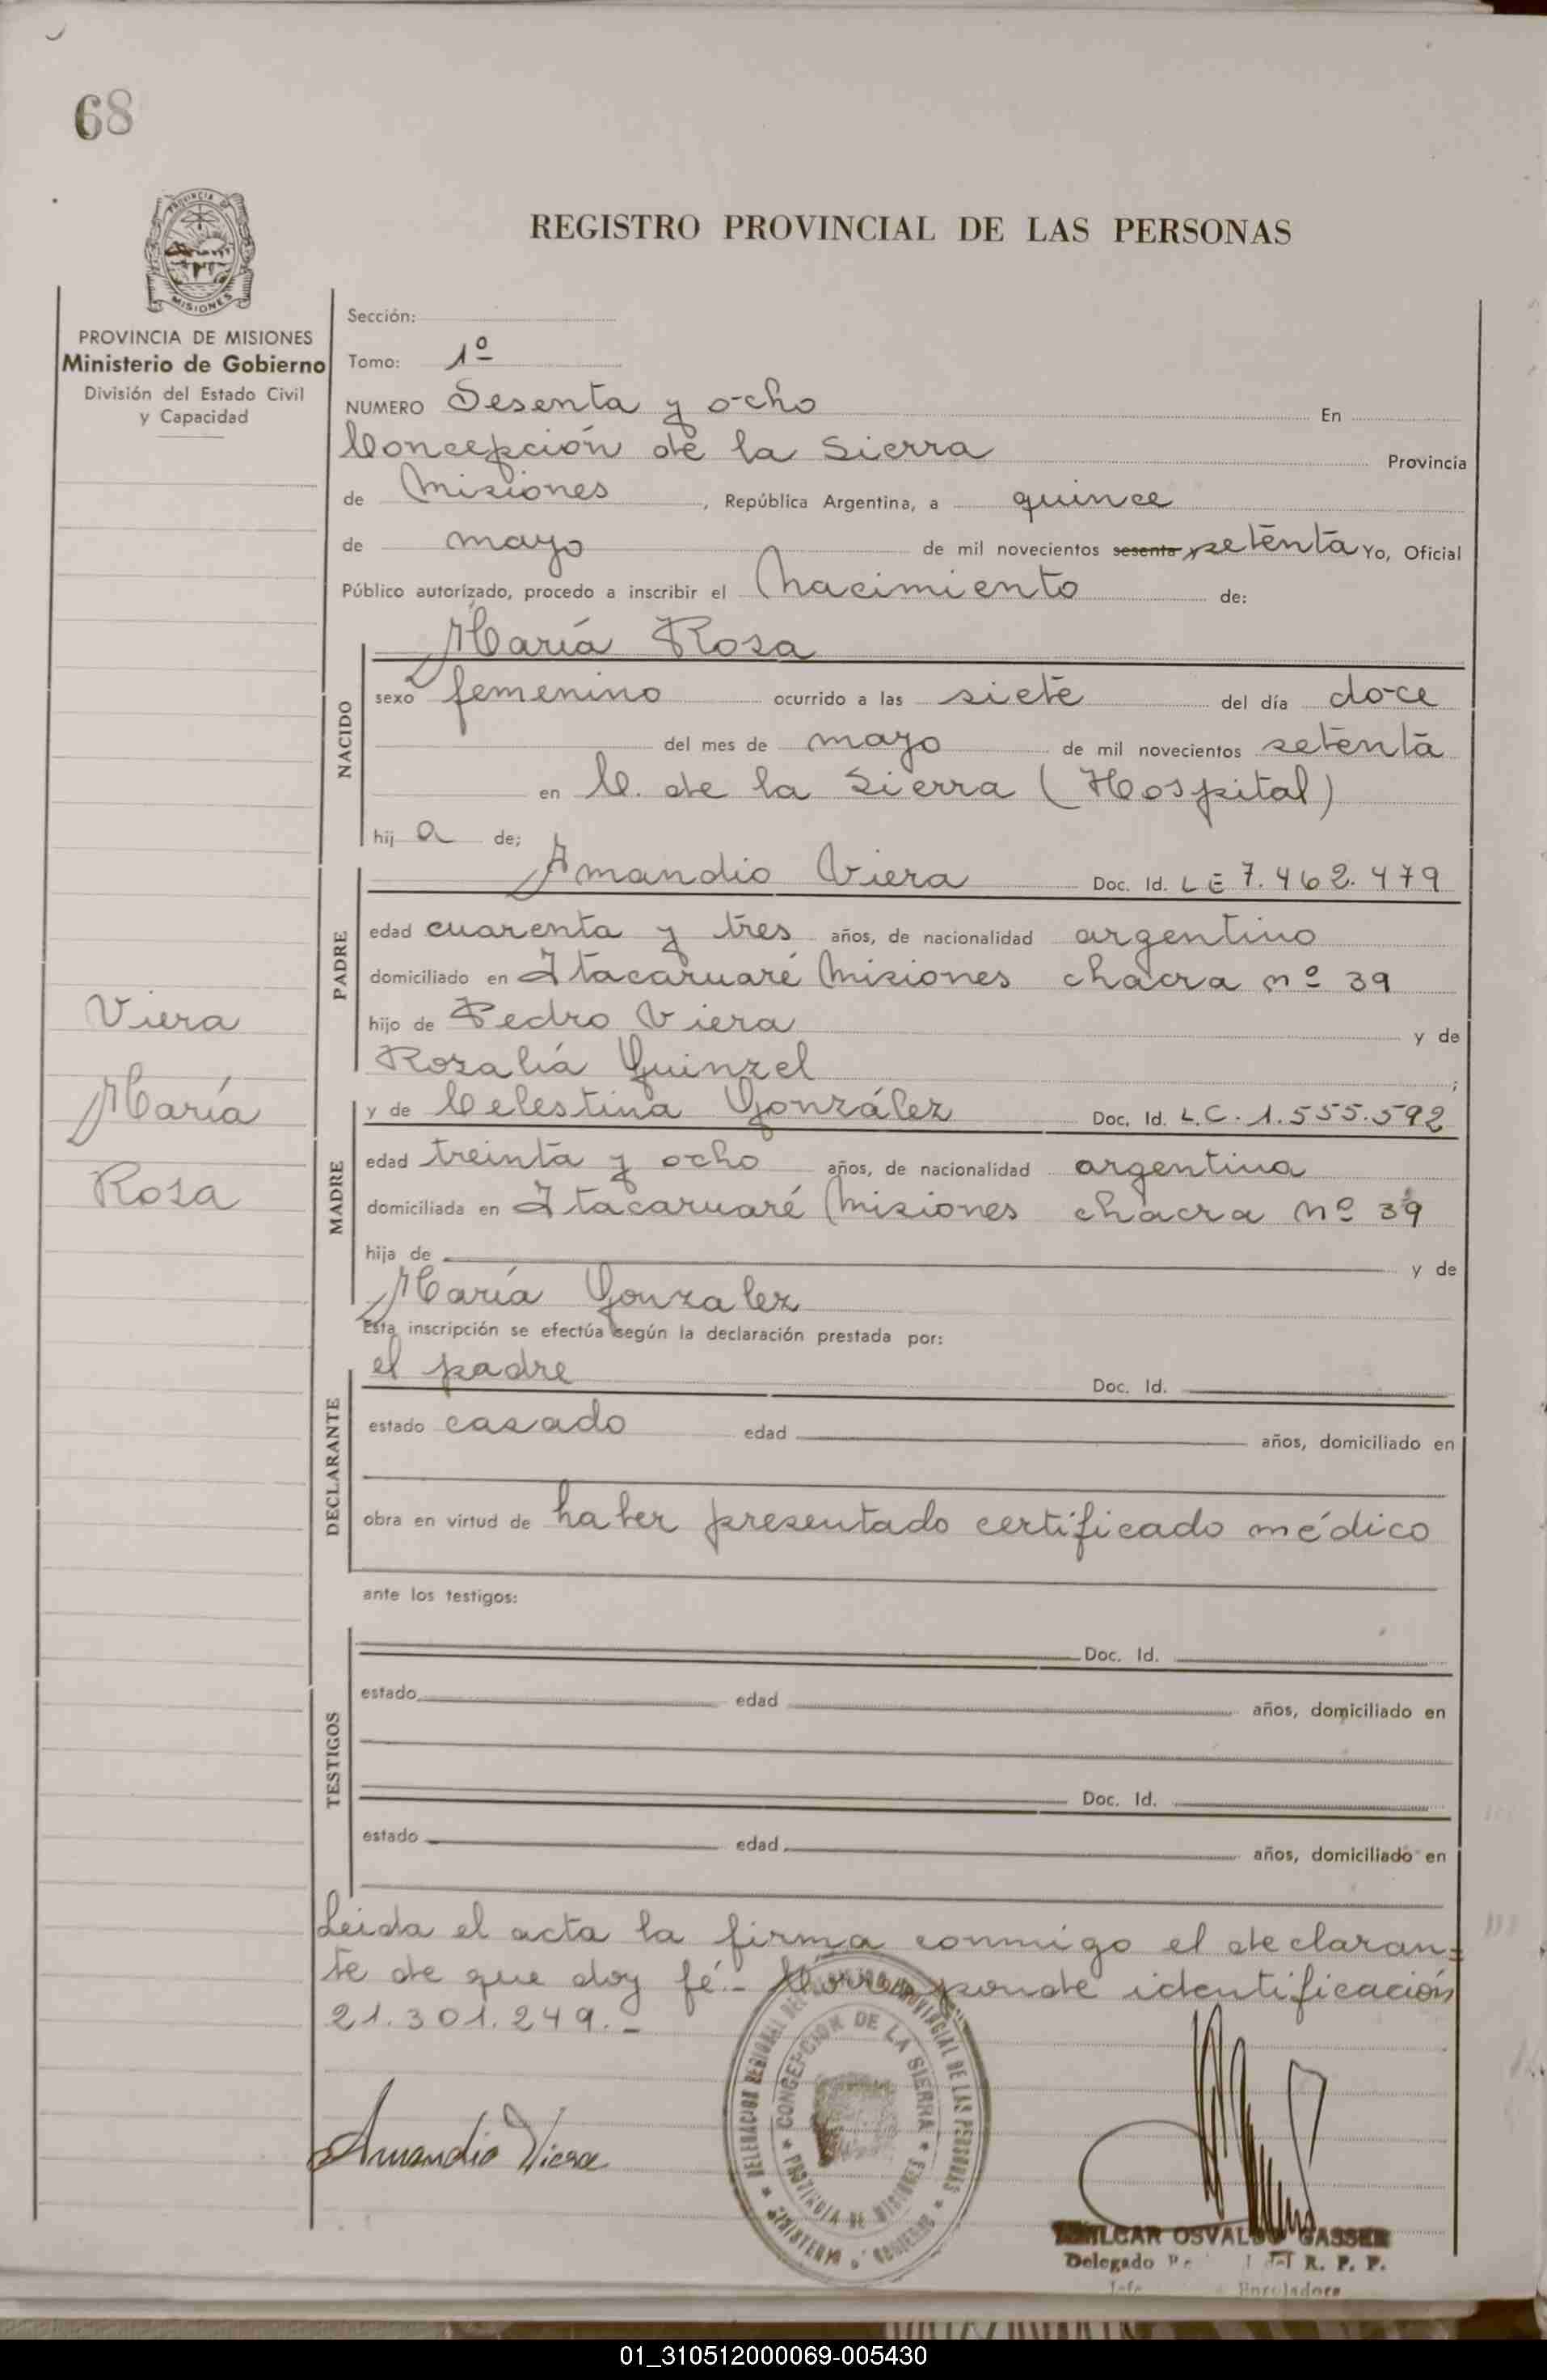 68
PROVINCIA
MISIONES
REGISTRO PROVINCIAL DE LAS PERSONAS
PROVINCIA DE MISIONES
Ministerio de Gobierno
División del Estado Civil
y Capacidad
Sección:
Tomo: 1º
NUMERO Sesenta y ocho En
Concepción de la Sierra Provincia
de Misiones, República Argentina, a quince
de mayo de mil novecientos sesenta y setenta Yo, Oficial
Público autorizado, procedo a inscribir el Nacimiento de:
NACIDO
María Rosa
sexo femenino ocurrido a las siete del día doce
del mes de mayo de mil novecientos setenta
en C. de la Sierra (Hospital)
hij a de;
PADRE
Amandio Viera Doc. Id. L E 7.462.479
edad cuarenta y tres años, de nacionalidad argentino
domiciliado en Itacaruaré Misiones chacra nº 39
hijo de Pedro Viera y de
Rosalía Guinzel ;
Viera
María
Rosa
MADRE
y de Celestina González Doc. Id. L.C. 1.555.592
edad treinta y ocho años, de nacionalidad argentina
domiciliada en Itacaruaré Misiones chacra nº 39
hija de y de
María Gonzalez
Esta inscripción se efectúa según la declaración prestada por:
DECLARANTE
el padre Doc. Id.
estado casado edad años, domiciliado en
obra en virtud de haber presentado certificado médico
ante los testigos:
TESTIGOS
Doc. Id.
estado edad años, domiciliado en
Doc. Id.
estado edad años, domiciliado en
Leida el acta la firma conmigo el declaran=
te de que doy fé.- Corresponde identificación
21.301.249.-
Amandio Viera
DELEGACION REGIONAL DEL REGISTRO PROVINCIAL DE LAS PERSONAS
CONCEPCION DE LA SIERRA
PROVINCIA DE MISIONES
MINISTERIO GOBIERNO
AMILCAR OSVALDO GASSER
Delegado R. P. P.
Jefe Enroladora
01_310512000069-005430